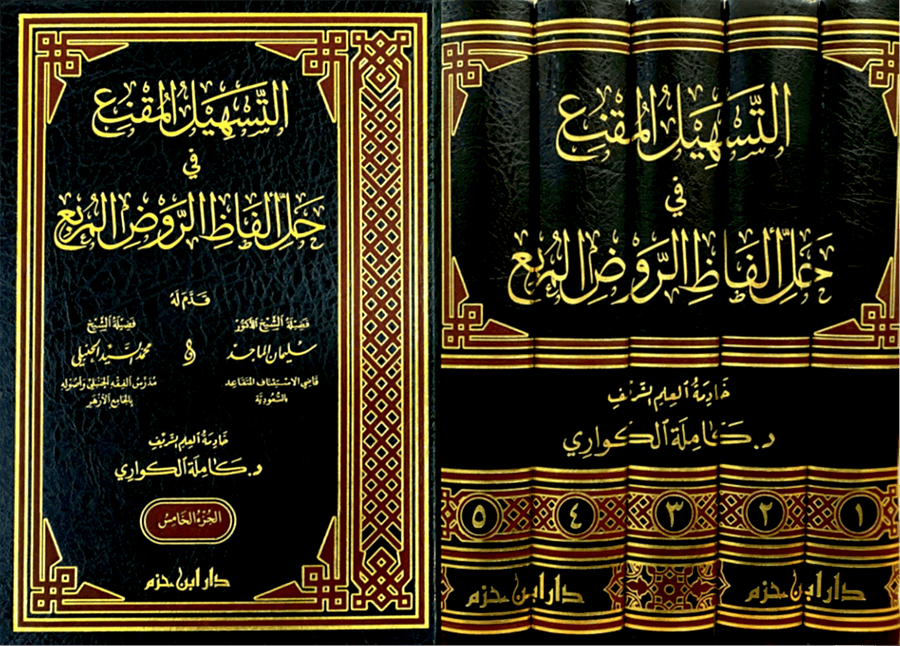 التسهيل المقنع
في
حل ألفاظ الروض المربع
قدم له
فضيلة الشيخ الدكتور
سليمان الماجد
قاضي الاستئناف المتقاعد
بالسعودية
و
فضيلة الشيخ
محمد السيد الحنبلي
مدرس الفقه الحنبلي وأصوله
بالجامع الأزهر
خادمة العلم الشريف
د. كاملة الكواري
الجزء الخامس
دار ابن حزم
التسهيل المقنع
في
حل ألفاظ الروض المربع
خادمة العلم الشريف
د. كاملة الكواري
١ ٢ ٣ ٤ ٥
دار ابن حزم دار ابن حزم